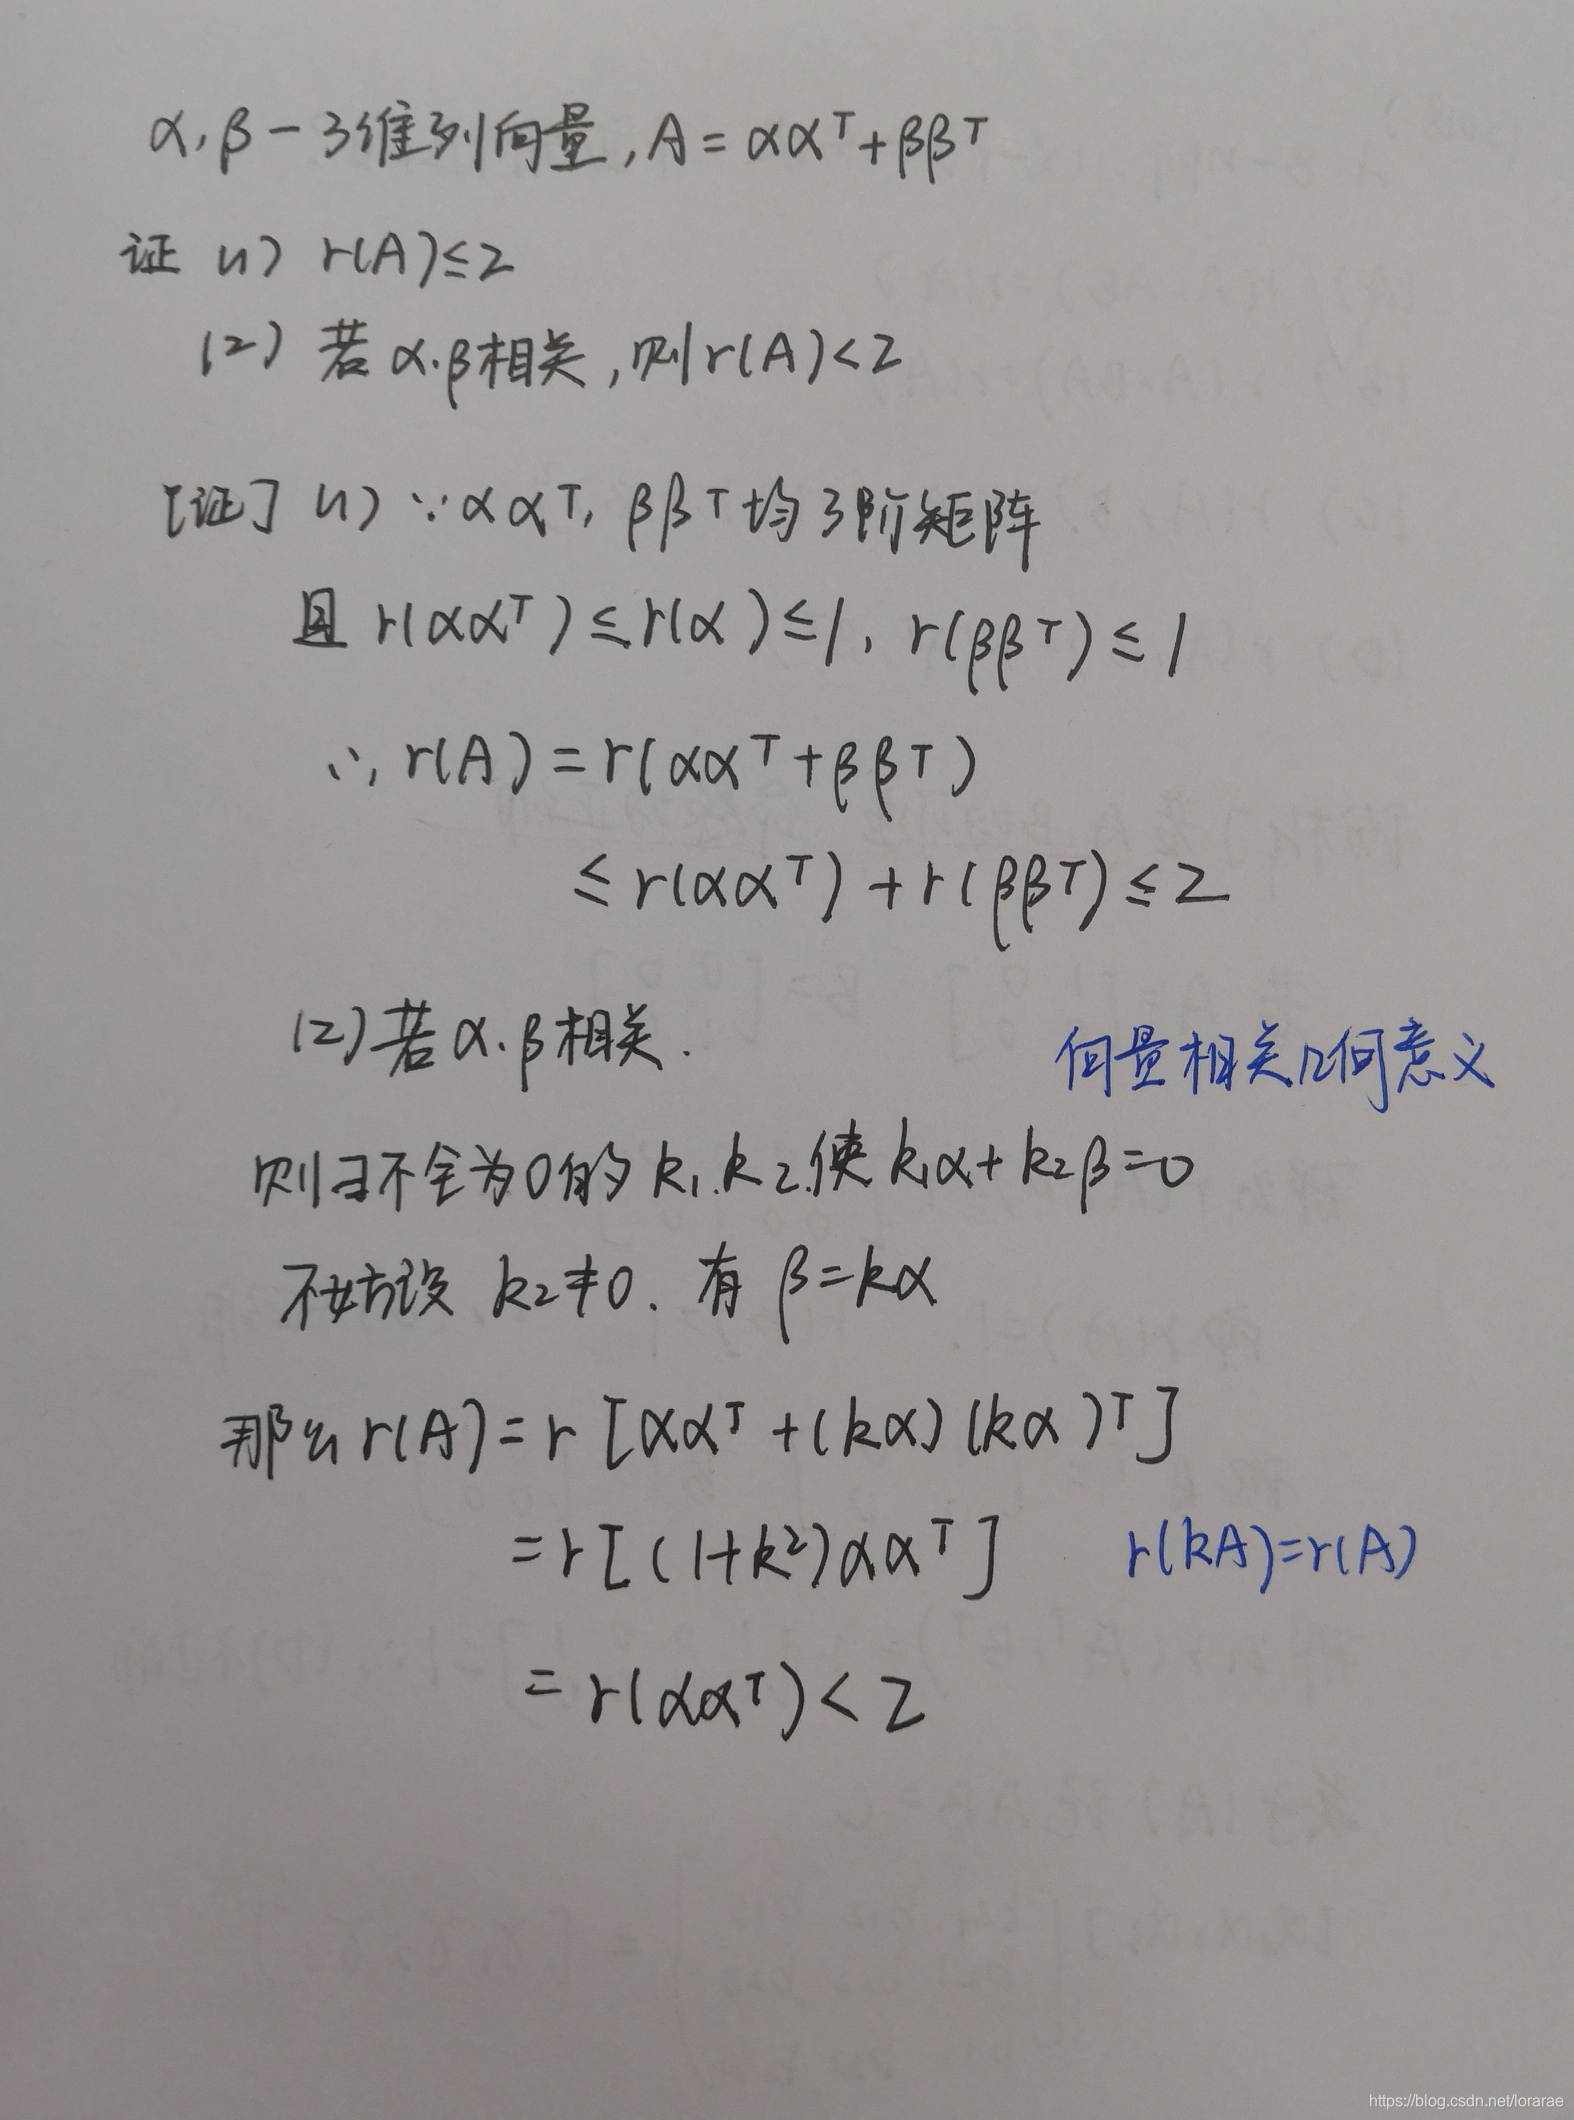 α,β-3维列向量,A=αα^T+ββ^T
证 (1) r(A)≤2
(2) 若α.β相关,则r(A)<2
[证] (1) ∵αα^T, ββ^T均3阶矩阵
且 r(αα^T)≤r(α)≤1, r(ββ^T)≤1
∴ r(A)=r(αα^T+ββ^T)
≤r(αα^T)+r(ββ^T)≤2
(2)若α.β相关.
向量相关几何意义
则∃不全为0的k₁.k₂.使k₁α+k₂β=0
不妨设 k₂≠0. 有 β=kα
那么r(A)=r[αα^T+(kα)(kα)^T]
=r[(1+k²)αα^T] r(kA)=r(A)
=r(αα^T)<2
https://blog.csdn.net/lorarae